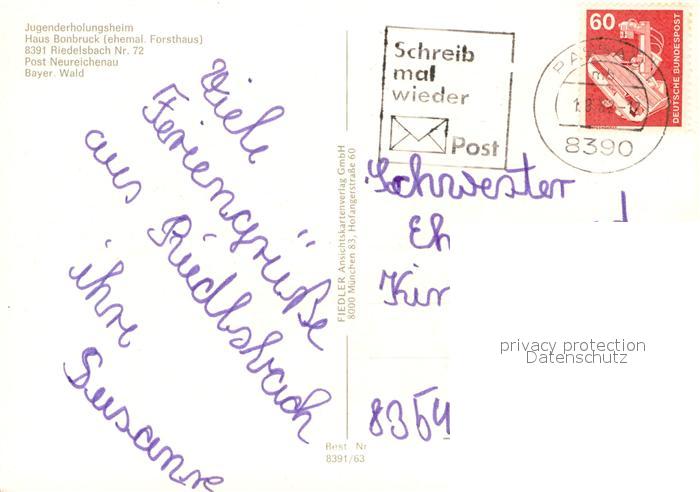 Jugenderholungsheim
Haus Bonbruck (ehemal. Forsthaus)
8391 Riedelsbach Nr. 72
Post Neureichenau
Bayer. Wald
Viele
Feriengrüße
aus Riedlsbach
ihre
Susanne
FIEDLER Ansichtskartenverlag GmbH
8000 München 83, Hofangerstraße 60
Best. Nr
8391/63
Schreib
mal
wieder
Post
PASSAU
8390
60
DEUTSCHE BUNDESPOST
Schwester
Eh
Kir
8354
privacy protection
Datenschutz